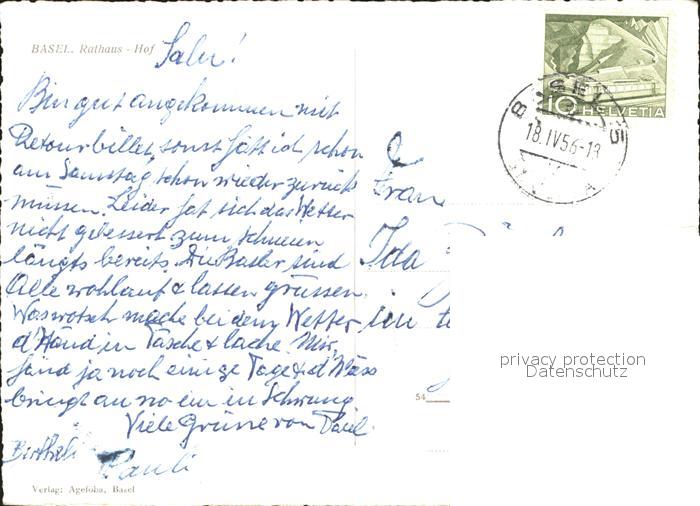 BASEL. Rathaus - Hof
Salu!
Bin gut angekommen mit
Retourbillet, sonst hätt ich schon
am Samstag schon wieder zurück
müssen. Leider hat sich das Wetter
nicht gebessert, zum schneien
längts bereits. Die Basler sind
Alle wohlauf & lassen grüssen.
Waswotsch mache bei dem Wetter
d'Händ in Tasche & lache. Mir
sind ja noch einige Tage & d'Mäss
bringt au no ein in Schwung
Viele Grüsse von Paul.
Pauli
Verlag: Agfoba, Basel
Frau
Ida
54
10 HELVETIA
BASEL
18.IV.56-13
privacy protection
Datenschutz